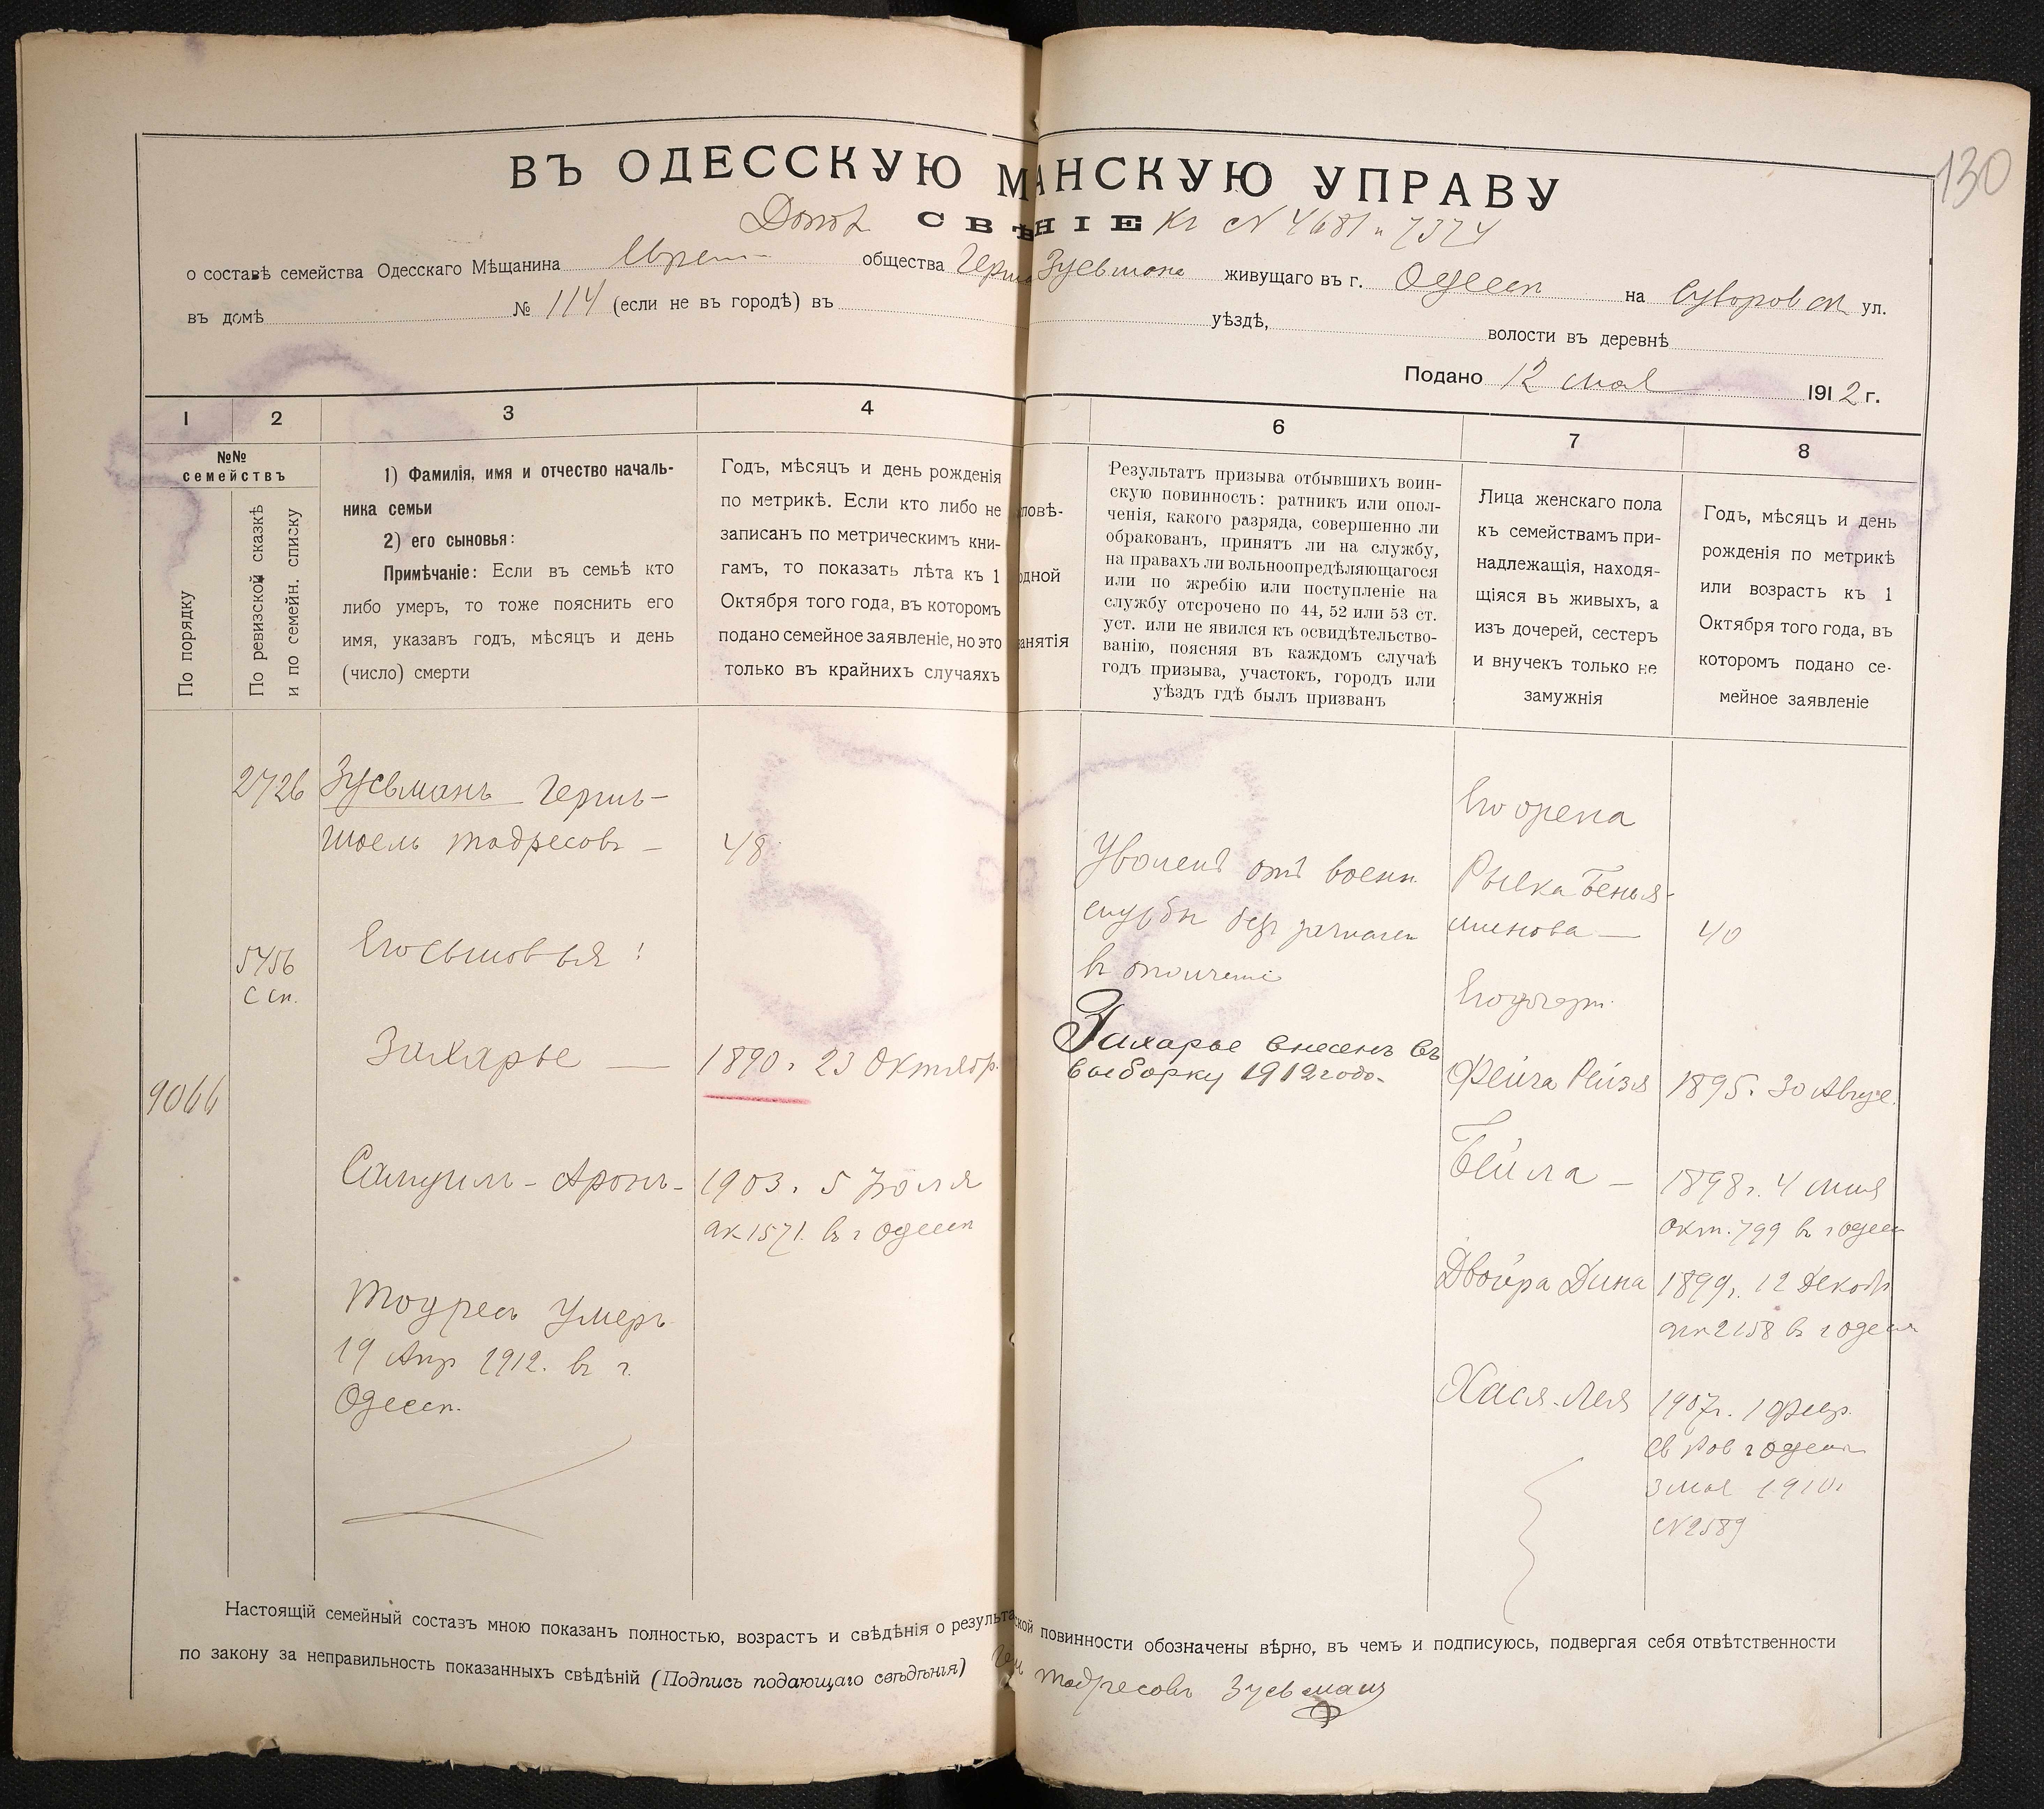 130
ВЪ ОДЕССКУЮ МАНСКУЮ УПРАВУ
СВѢНІЕ Къ № 4681 и 7374
о составѣ семейства Одесскаго Мѣщанина общества Герша Зусьмана живущаго въ г. Одессѣ на Суворовск ул.
въ домѣ № 114 (если не въ городѣ) въ уѣздѣ, волости въ деревнѣ
Подано 12 мая 1912 г.
1
2
3
4
6
7
8
№№
семействъ
По порядку
По ревизской сказкѣ
и по семейн. списку
1) Фамилія, имя и отчество началь-
ника семьи
2) его сыновья:
Примѣчаніе: Если въ семьѣ кто
либо умеръ, то тоже пояснить его
имя, указавъ годъ, мѣсяцъ и день
(число) смерти
Годъ, мѣсяцъ и день рожденія
по метрикѣ. Если кто либо не
записанъ по метрическимъ кни-
гамъ, то показать лѣта къ 1
Октября того года, въ которомъ
подано семейное заявленіе, но это
только въ крайнихъ случаяхъ
повѣ-
одной
анятія
Результатъ призыва отбывшихъ воин-
скую повинность: ратникъ или опол-
ченія, какого разряда, совершенно ли
обракованъ, принятъ ли на службу,
на правахъ ли вольноопредѣляющагося
или по жребію или поступленіе на
службу отсрочено по 44, 52 или 53 ст.
уст. или не явился къ освидѣтельство-
ванію, поясняя въ каждомъ случаѣ
годъ призыва, участокъ, городъ или
уѣздъ гдѣ былъ призванъ
Лица женскаго пола
къ семействамъ при-
надлежащія, находя-
щіяся въ живыхъ, а
изъ дочерей, сестеръ
и внучекъ только не
замужнія
Годъ, мѣсяцъ и день
рожденія по метрикѣ
или возрастъ къ 1
Октября того года, въ
которомъ подано се-
мейное заявленіе
2726
Зусьманъ Гершъ-
Шоель Тодресовъ — 48
5456
с сп.
Его сыновья:
9066
Захарье — 1890 г. 23 Октябр.
Самуилъ-Аронъ- 1903 г. 5 Іюля
ак 1571. въ г Одессѣ
Тодресъ умеръ
19 Апр 1912. въ г.
Одессѣ.
Уволенъ отъ воен.
службы безъ зачислен
в ополченіе
Захарье внесенъ въ
выборку 1912 года.
Его жена
Рывка Бенья-
минова — 40
Его дочери
Фейга Рейзя 1895 г. 30 Авгус.
Бейла — 1898 г. 4 мая
акт. 799 въ г Одесс
Двойра Дина 1899 г. 12 Декабр
ак 2158 въ г Одессѣ
Хася-Лея 1907 г. 1 Февр.
св Рав г Одессы
3 мая 1910 г
№ 2589
Настоящій семейный составъ мною показанъ полностью, возрастъ и свѣдѣнія о результа ской повинности обозначены вѣрно, въ чемъ и подписуюсь, подвергая себя отвѣтственности
по закону за неправильность показанныхъ свѣдѣній (Подпись подающаго свѣдѣнія) Тодресовъ Зусьманъ